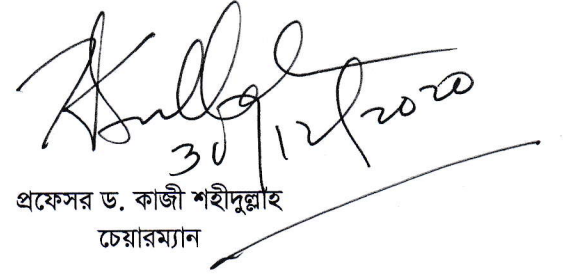 30/12/2020
প্রফেসর ড. কাজী শহীদুল্লাহ
চেয়ারম্যান